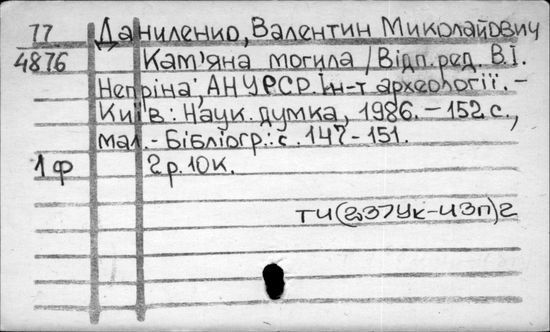 77 Даниленко, Валентин Миколайович
4876 Кам'яна могила / Відп. ред. В.І.
Непріна; АН УРСР. Ін-т археології. –
Київ: Наук. думка, 1986. – 152 с.,
мал. - Бібліогр.: с. 147-151.
1ф 2р. 10к.